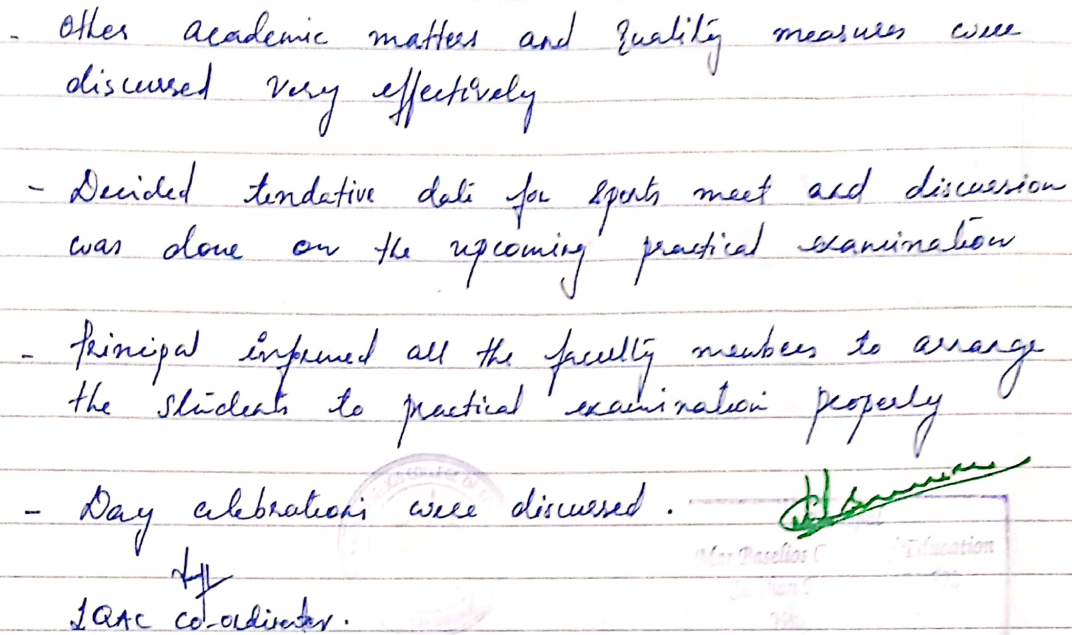 - Other academic matters and Quality measures were
discussed very effectively
- Decided tendative date for sports meet and discussion
was done on the upcoming practical examination
- Principal informed all the faculty members to arrange
the students to practical examination properly
- Day celebrations were discussed.
Mar Baselios Education
IQAC co-ordinator.